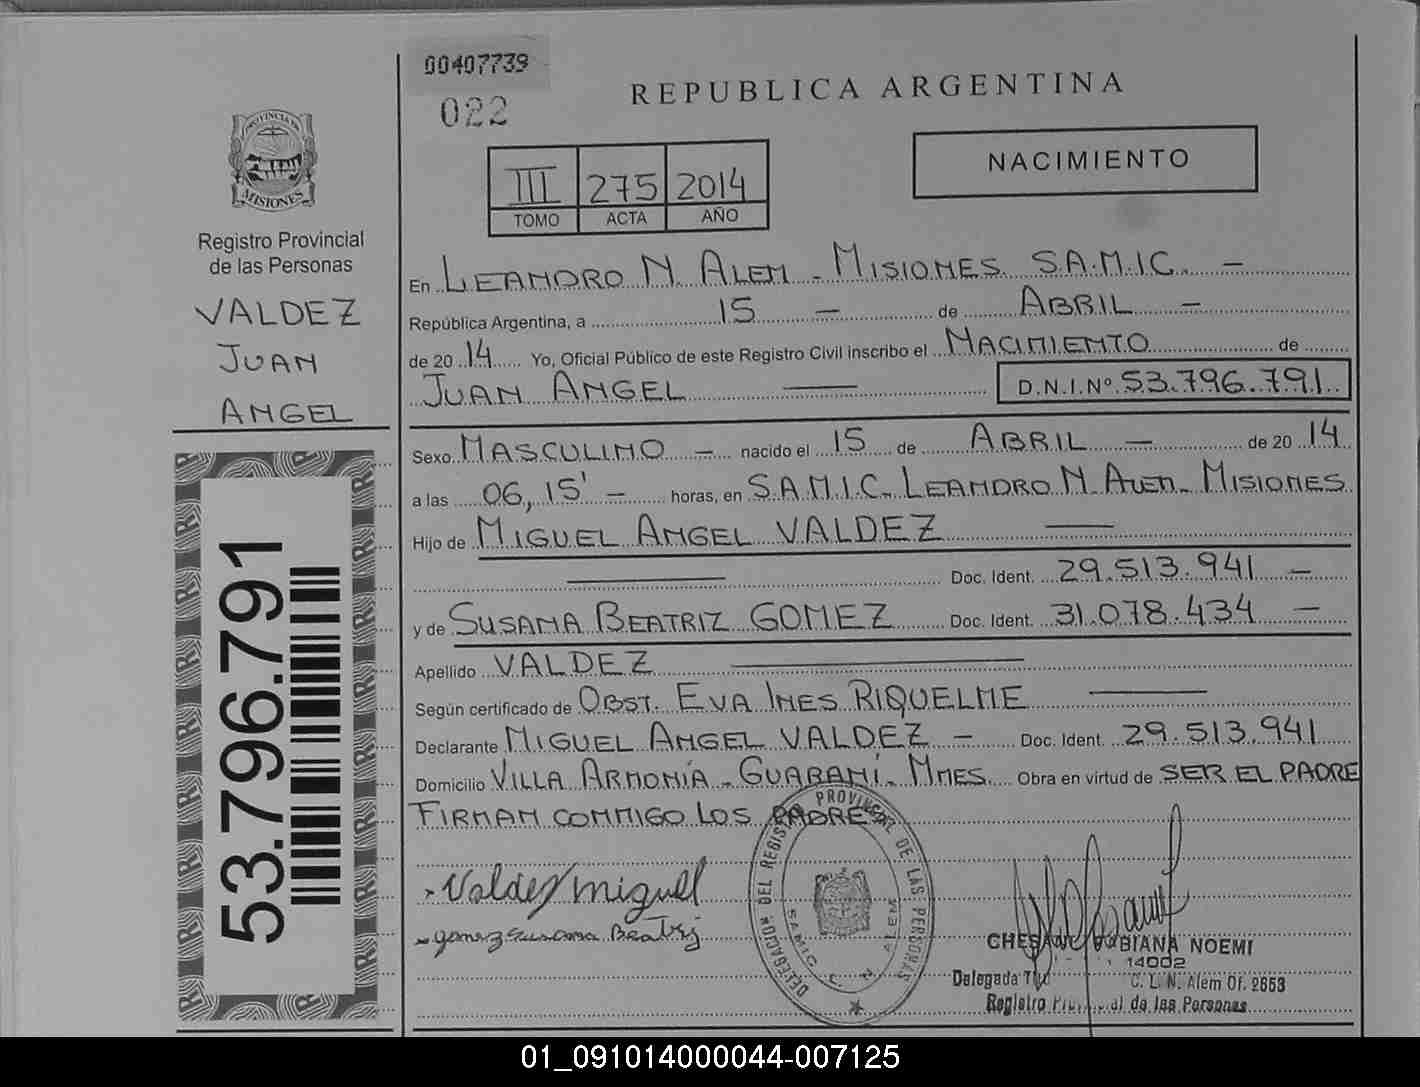 00407739
022
REPUBLICA ARGENTINA
NACIMIENTO
III 275 2014
TOMO ACTA AÑO
PROVINCIA DE
MISIONES
Registro Provincial
de las Personas
VALDEZ
JUAN
ANGEL
53.796.791
En LEANDRO N. ALEM - MISIONES S.A.M.I.C. —
República Argentina, a 15 — de ABRIL —
de 2014 Yo, Oficial Público de este Registro Civil inscribo el NACIMIENTO de
JUAN ANGEL — D.N.I.Nº 53.796.791
Sexo MASCULINO — nacido el 15 de ABRIL — de 2014
a las 06,15' — horas, en S.A.M.I.C. LEANDRO N. ALEM - MISIONES
Hijo de MIGUEL ANGEL VALDEZ —
— Doc. Ident. 29.513.941 —
y de SUSANA BEATRIZ GOMEZ Doc. Ident. 31.078.434 —
Apellido VALDEZ —
Según certificado de OBST. EVA INES RIQUELME —
Declarante MIGUEL ANGEL VALDEZ — Doc. Ident. 29.513.941
Domicilio VILLA ARMONÍA - GUARANÍ - MNES. Obra en virtud de SER EL PADRE
FIRMAN CONMIGO LOS PADRES
Valdez miguel
gomez Susana Beatriz
DELEGACION DEL REGISTRO PROVINCIAL DE LAS PERSONAS
SAMIC L. N. ALEM
FABIANA NOEMI
14002
Delegada C. L. N. Alem Of. 2653
Registro Provincial de las Personas
01_091014000044-007125